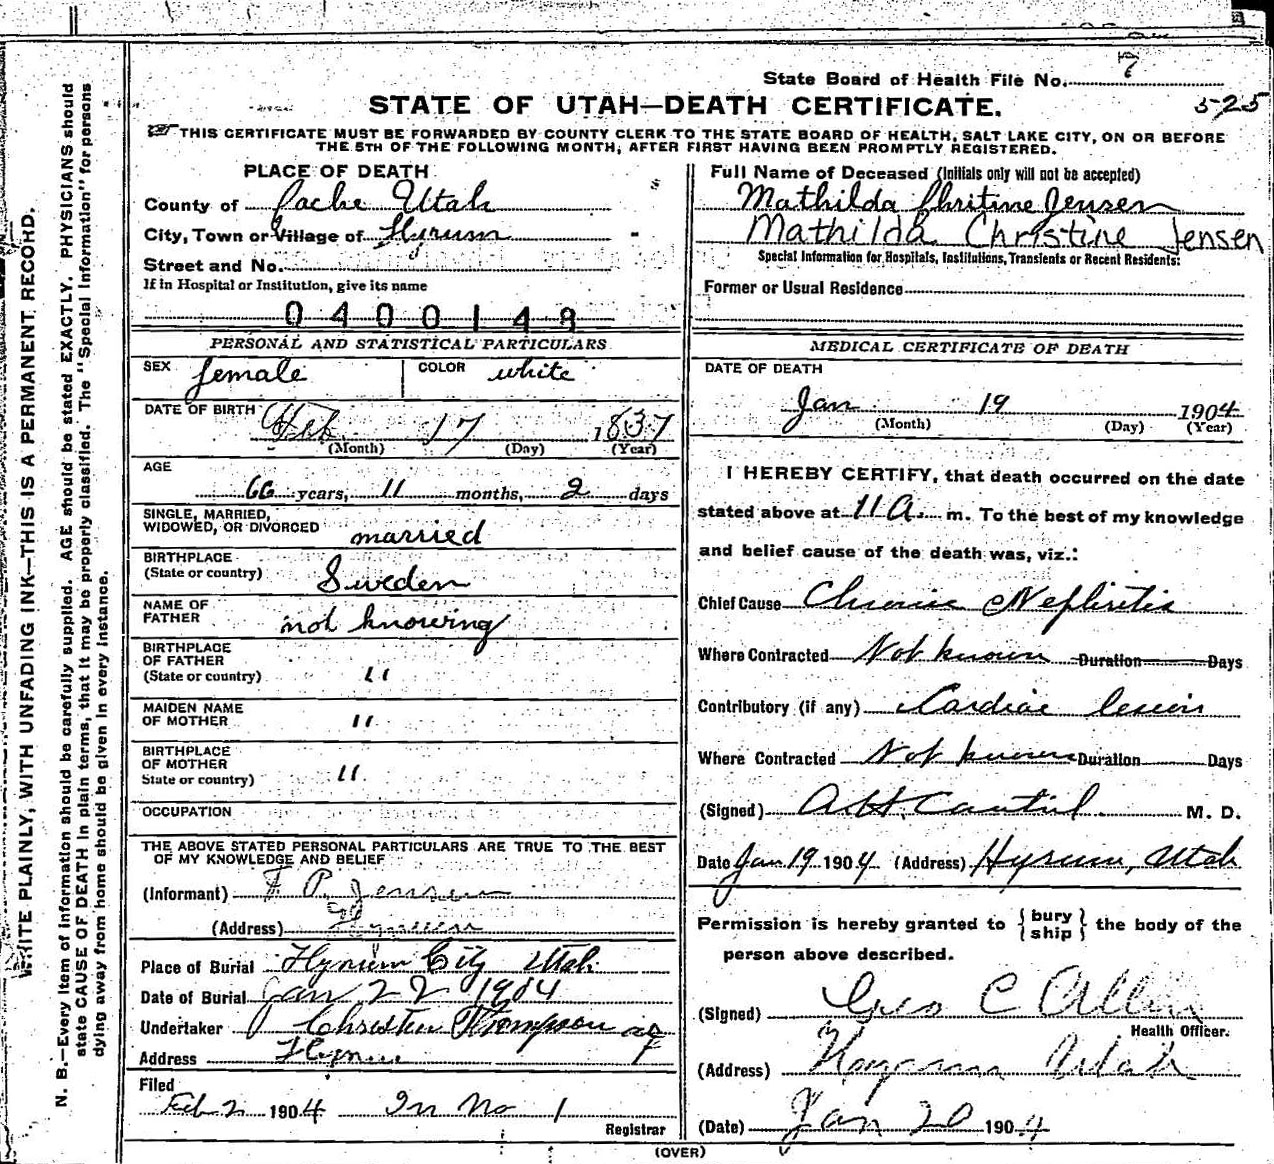 State Board of Health File No. 7
STATE OF UTAH—DEATH CERTIFICATE.
525
THIS CERTIFICATE MUST BE FORWARDED BY COUNTY CLERK TO THE STATE BOARD OF HEALTH, SALT LAKE CITY, ON OR BEFORE
THE 5TH OF THE FOLLOWING MONTH, AFTER FIRST HAVING BEEN PROMPTLY REGISTERED.
PLACE OF DEATH
County of Cache Utah
City, Town or Village of Hyrum
Street and No.
If in Hospital or Institution, give its name
0400148
PERSONAL AND STATISTICAL PARTICULARS
SEX female COLOR white
DATE OF BIRTH Feb 17 1837
(Month) (Day) (Year)
AGE
66 years, 11 months, 2 days
SINGLE, MARRIED,
WIDOWED, OR DIVORCED married
BIRTHPLACE
(State or country) Sweden
NAME OF
FATHER not knowing
BIRTHPLACE
OF FATHER
(State or country) 11
MAIDEN NAME
OF MOTHER 11
BIRTHPLACE
OF MOTHER
State or country) 11
OCCUPATION
THE ABOVE STATED PERSONAL PARTICULARS ARE TRUE TO THE BEST
OF MY KNOWLEDGE AND BELIEF
(Informant) F P. Jensen
(Address) Hyrum
Place of Burial Hyrum City Utah
Date of Burial Jan 22 1904
Undertaker Thompson
Address Hyrum
Filed
Feb 2 1904 In No 1
Registrar
Full Name of Deceased (Initials only will not be accepted)
Mathilda Chritine Jensen
Mathilda Christine Jensen
Special Information for Hospitals, Institutions, Transients or Recent Residents:
Former or Usual Residence
MEDICAL CERTIFICATE OF DEATH
DATE OF DEATH
Jan 19 1904
(Month) (Day) (Year)
I HEREBY CERTIFY, that death occurred on the date
stated above at 11 A. m. To the best of my knowledge
and belief cause of the death was, viz.:
Chief Cause Chronic Nephritis
Where Contracted Not known Duration Days
Contributory (if any) Cardiac lesion
Where Contracted Not known Duration Days
(Signed) M. D.
Date Jan 19 1904 (Address) Hyrum, Utah
Permission is hereby granted to {bury ship} the body of the
person above described.
(Signed) Geo C Allen
Health Officer.
(Address) Hyrum Utah
(Date) Jan 20 1904
(OVER)
WRITE PLAINLY, WITH UNFADING INK—THIS IS A PERMANENT RECORD.
N. B.—Every item of information should be carefully supplied. AGE should be stated EXACTLY. PHYSICIANS should
state CAUSE OF DEATH in plain terms, that it may be properly classified. The "Special Information" for persons
dying away from home should be given in every instance.